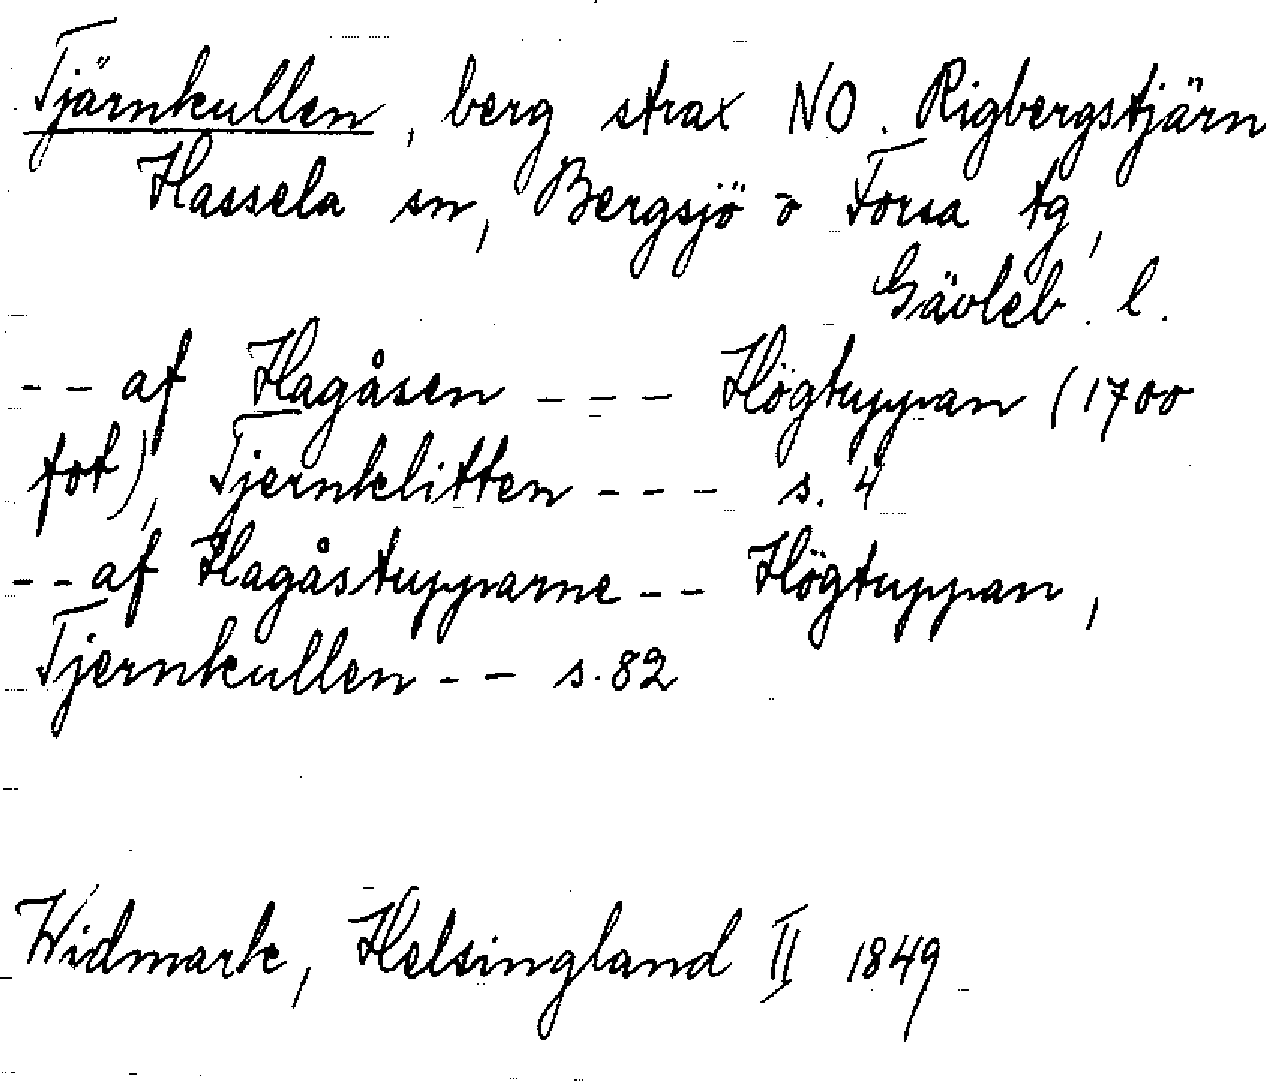 Tjärnkullen, berg strax NO. Rigbergstjärn
Hassela sn, Bergsjö o Forsa tg,
Gävleb. l.
-- af Hagåsen --- Högtuppan (1700
fot), Tjernklitten --- s. 4
-- af Hagåstupparne -- Högtuppan,
Tjernkullen -- s. 82
Widmark, Helsingland II 1849